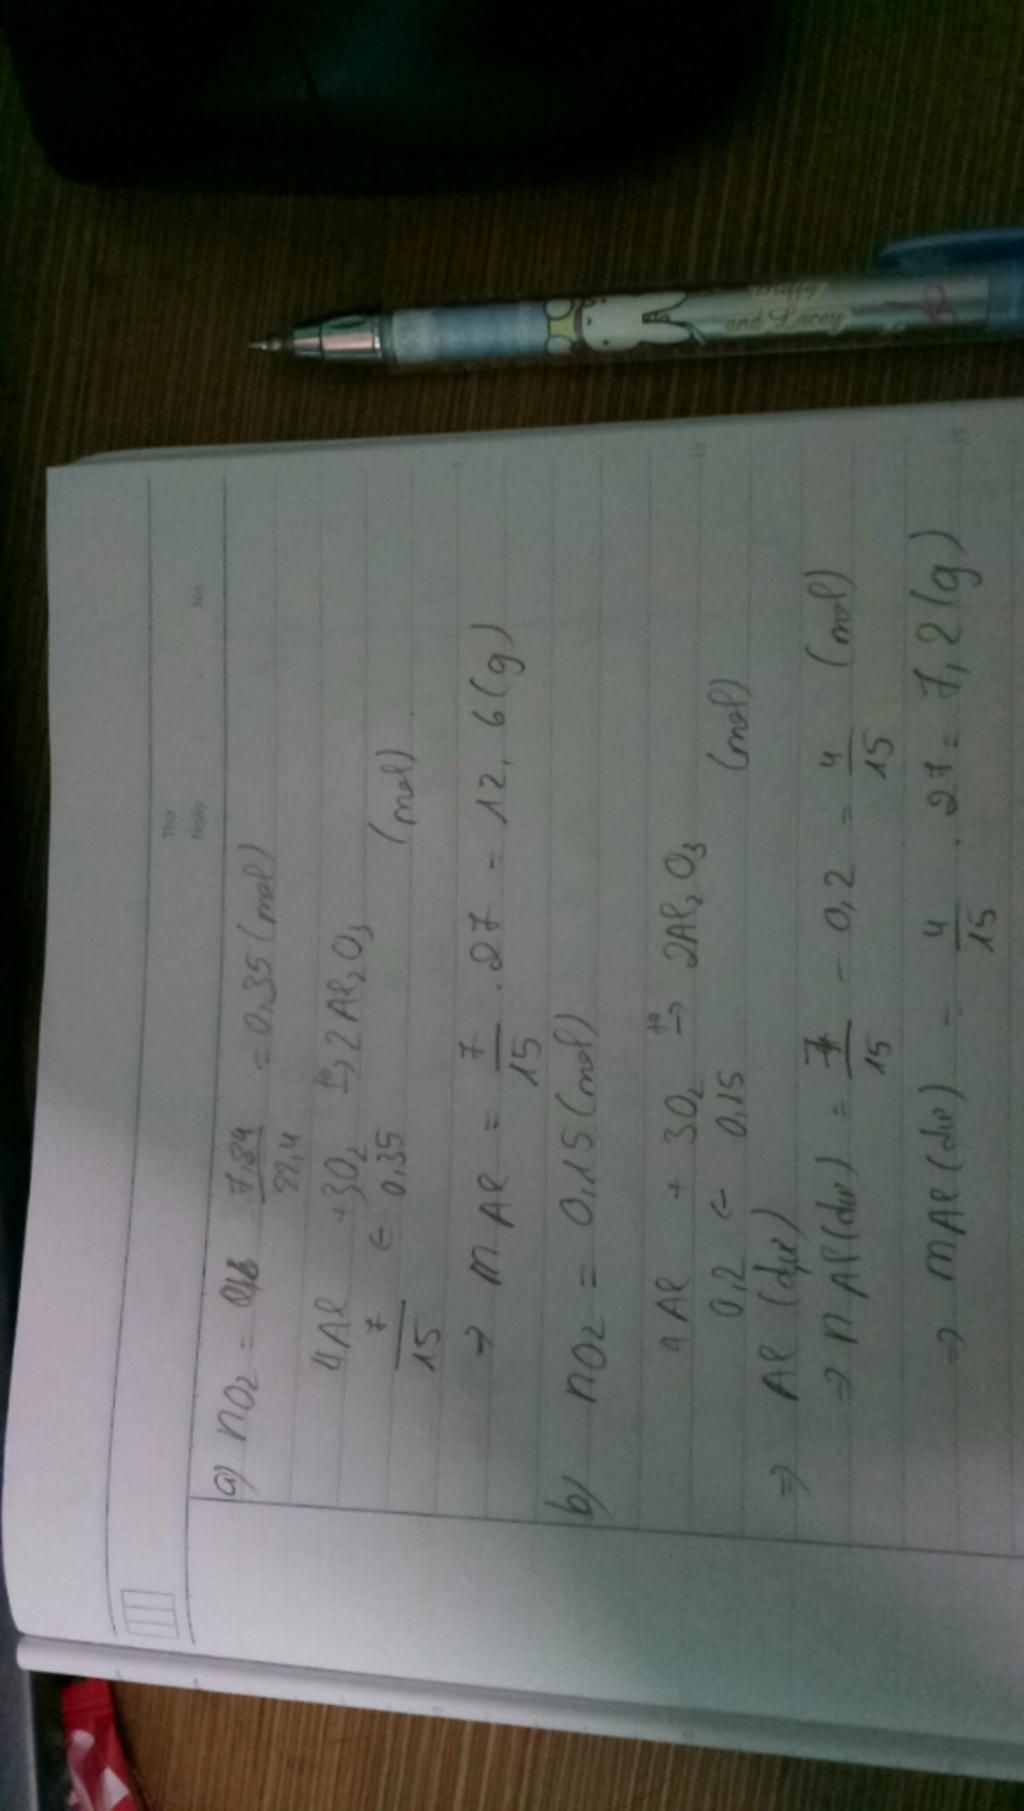 Thứ
Ngày
No
a) nO2 = 7,84/22,4 = 0,35 (mol)
4Al + 3O2 t°→ 2Al2O3
7/15 ← 0,35 (mol)
⇒ mAl = 7/15 . 27 = 12,6 (g)
b) nO2 = 0,15 (mol)
4Al + 3O2 t°→ 2Al2O3
0,2 ← 0,15 (mol)
⇒ Al (dư)
⇒ nAl (dư) = 7/15 - 0,2 = 4/15 (mol)
⇒ mAl (dư) = 4/15 . 27 = 7,2 (g)
and